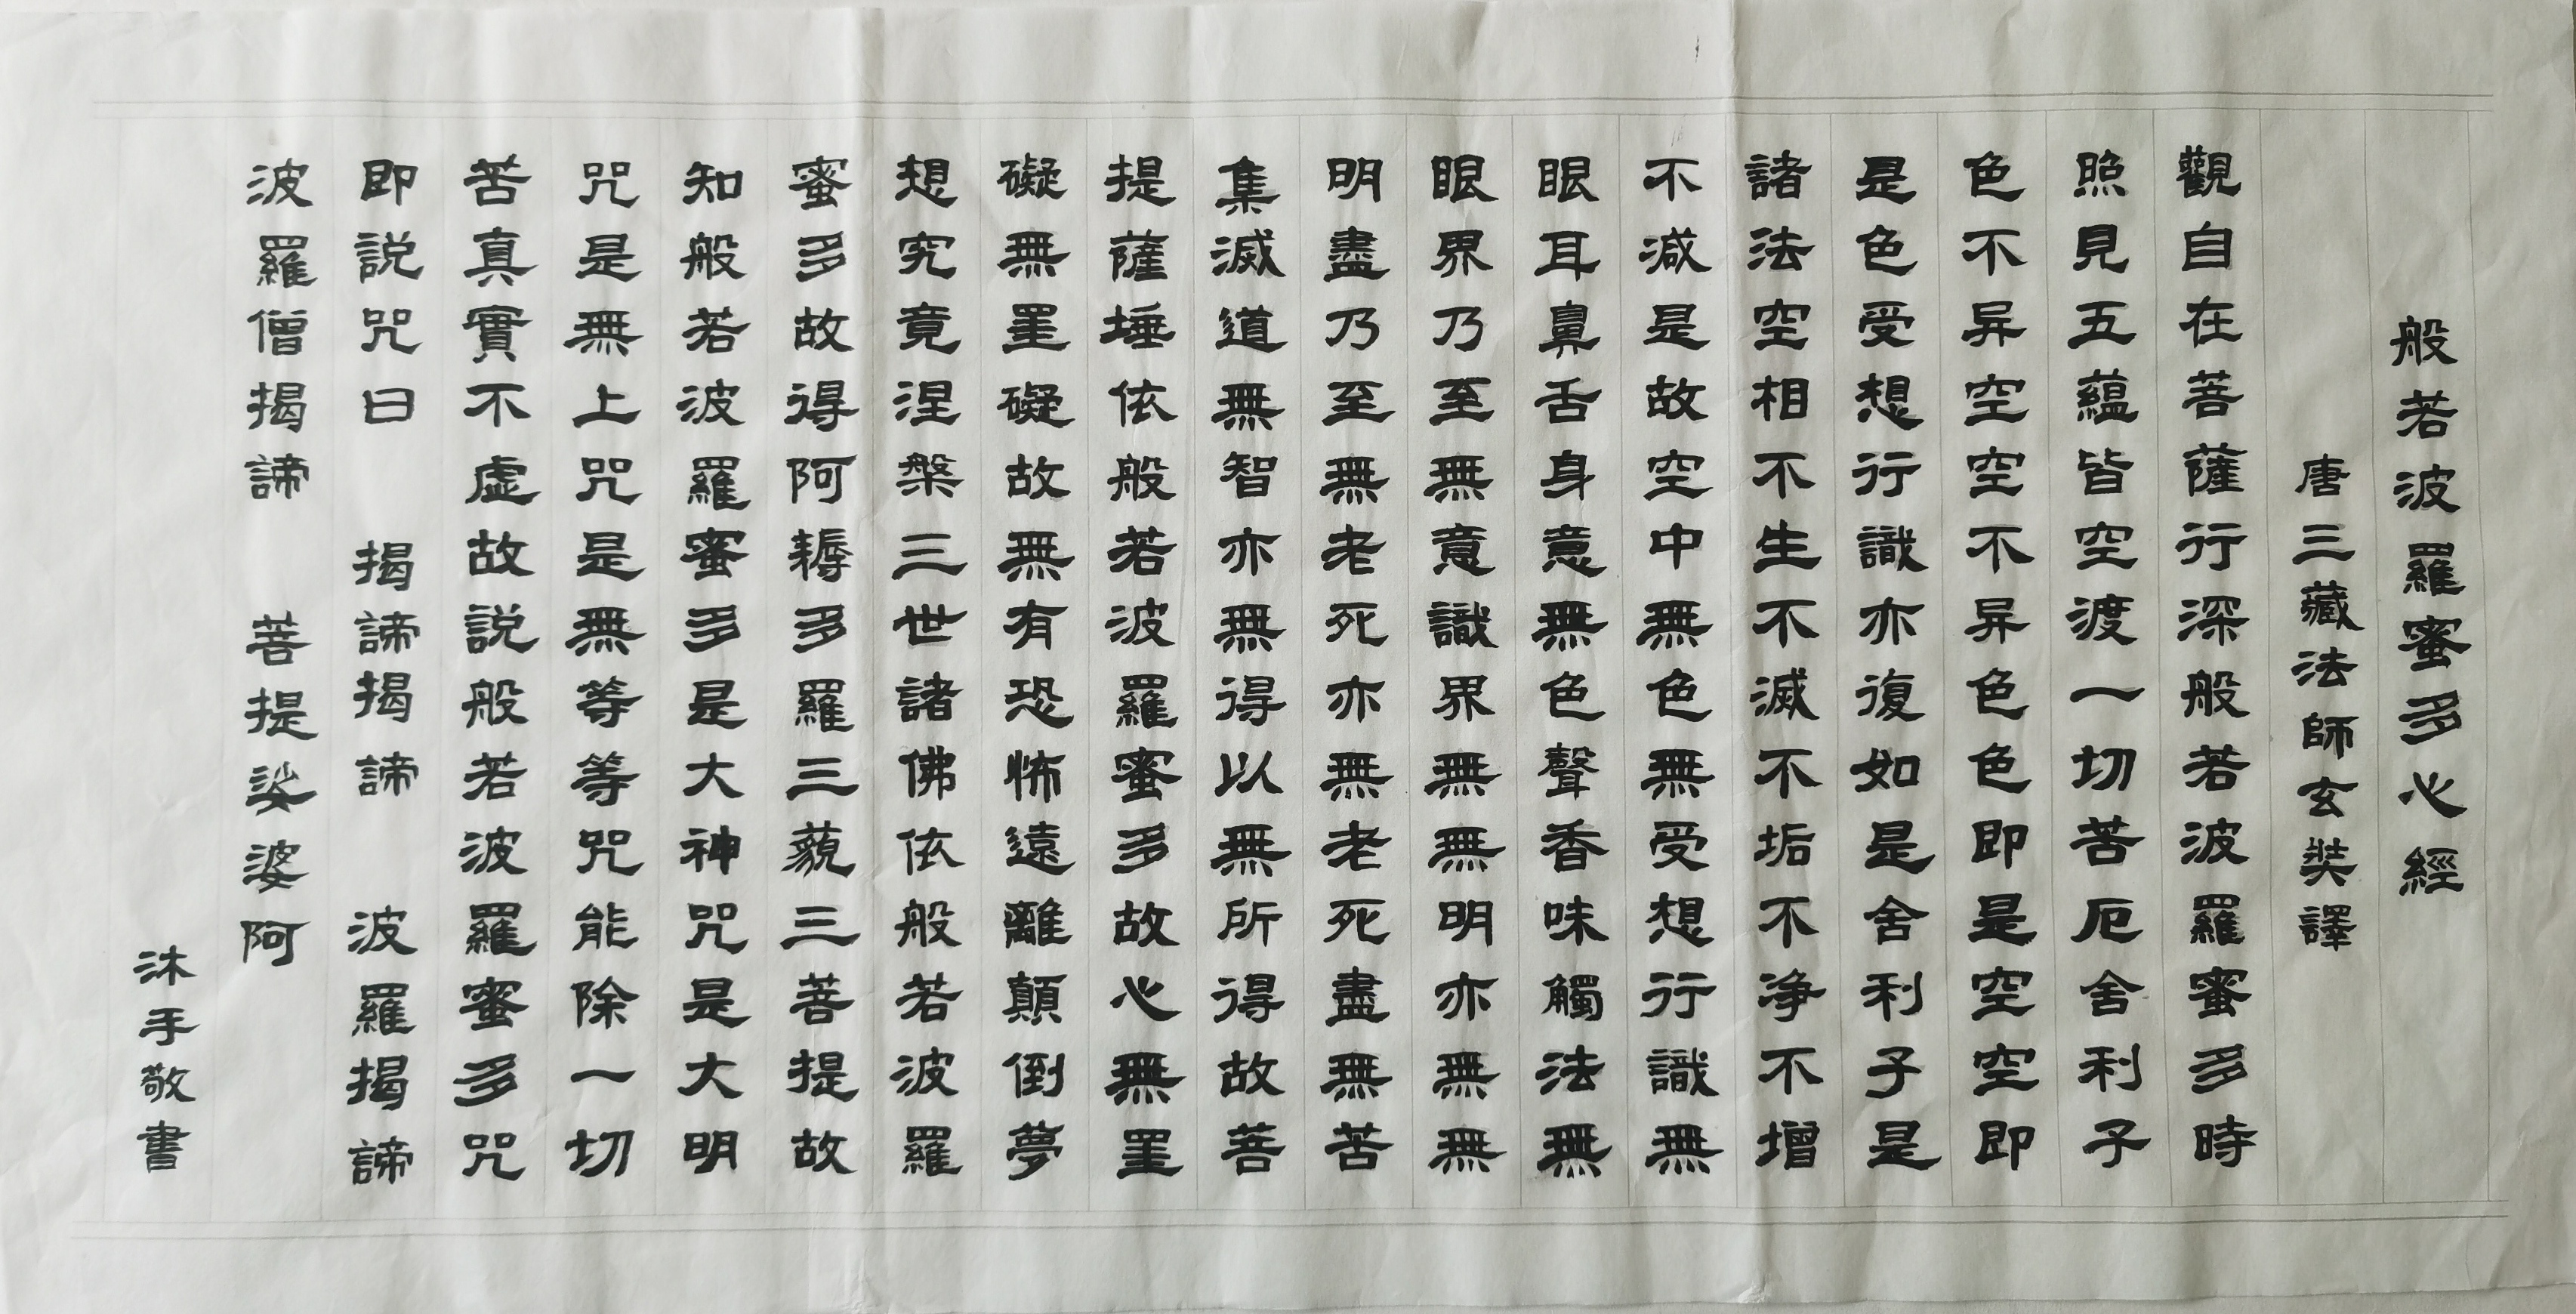 般若波羅蜜多心經
唐三藏法師玄奘譯
觀自在菩薩行深般若波羅蜜多時
照見五蘊皆空渡一切苦厄舍利子
色不异空空不异色色即是空空即
是色受想行識亦復如是舍利子是
諸法空相不生不滅不垢不净不增
不減是故空中無色無受想行識無
眼耳鼻舌身意無色聲香味觸法無
眼界乃至無意識界無無明亦無無
明盡乃至無老死亦無老死盡無苦
集滅道無智亦無得以無所得故菩
提薩埵依般若波羅蜜多故心無罣
礙無罣礙故無有恐怖遠離顛倒夢
想究竟涅槃三世諸佛依般若波羅
蜜多故得阿耨多羅三藐三菩提故
知般若波羅蜜多是大神咒是大明
咒是無上咒是無等等咒能除一切
苦真實不虛故説般若波羅蜜多咒
即説咒曰 揭諦揭諦 波羅揭諦
波羅僧揭諦 菩提娑婆阿
沐手敬書